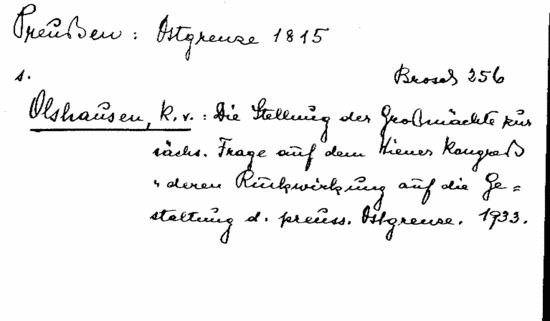 Preußen: Ostgrenze 1815
s.
Brosch 256
Olshausen, K. v.: Die Stellung der Großmächte zur
sächs. Frage auf dem Wiener Kongreß
u. deren Rückwirkung auf die Ge=
staltung d. preuss. Ostgrenze. 1933.